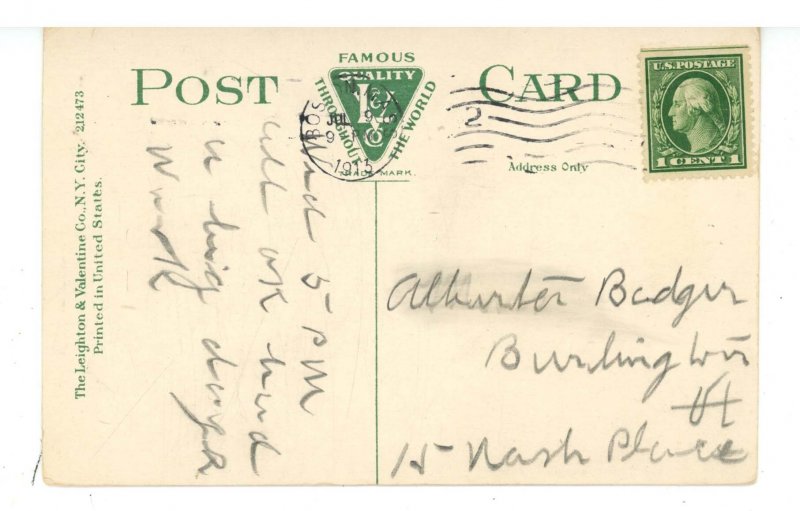 POST CARD
FAMOUS
QUALITY
THROUGHOUT
THE WORLD
L&V
Co
TRADE MARK.
U.S. POSTAGE
1 CENT 1
BOSTON, MASS
JUL 9
9 PM
2
Address Only
The Leighton & Valentine Co., N.Y. City. 212473
Printed in United States.
5 PM
all OK had
a big day
Alburtes Badger
Burlington
Vt
15 Nash Place